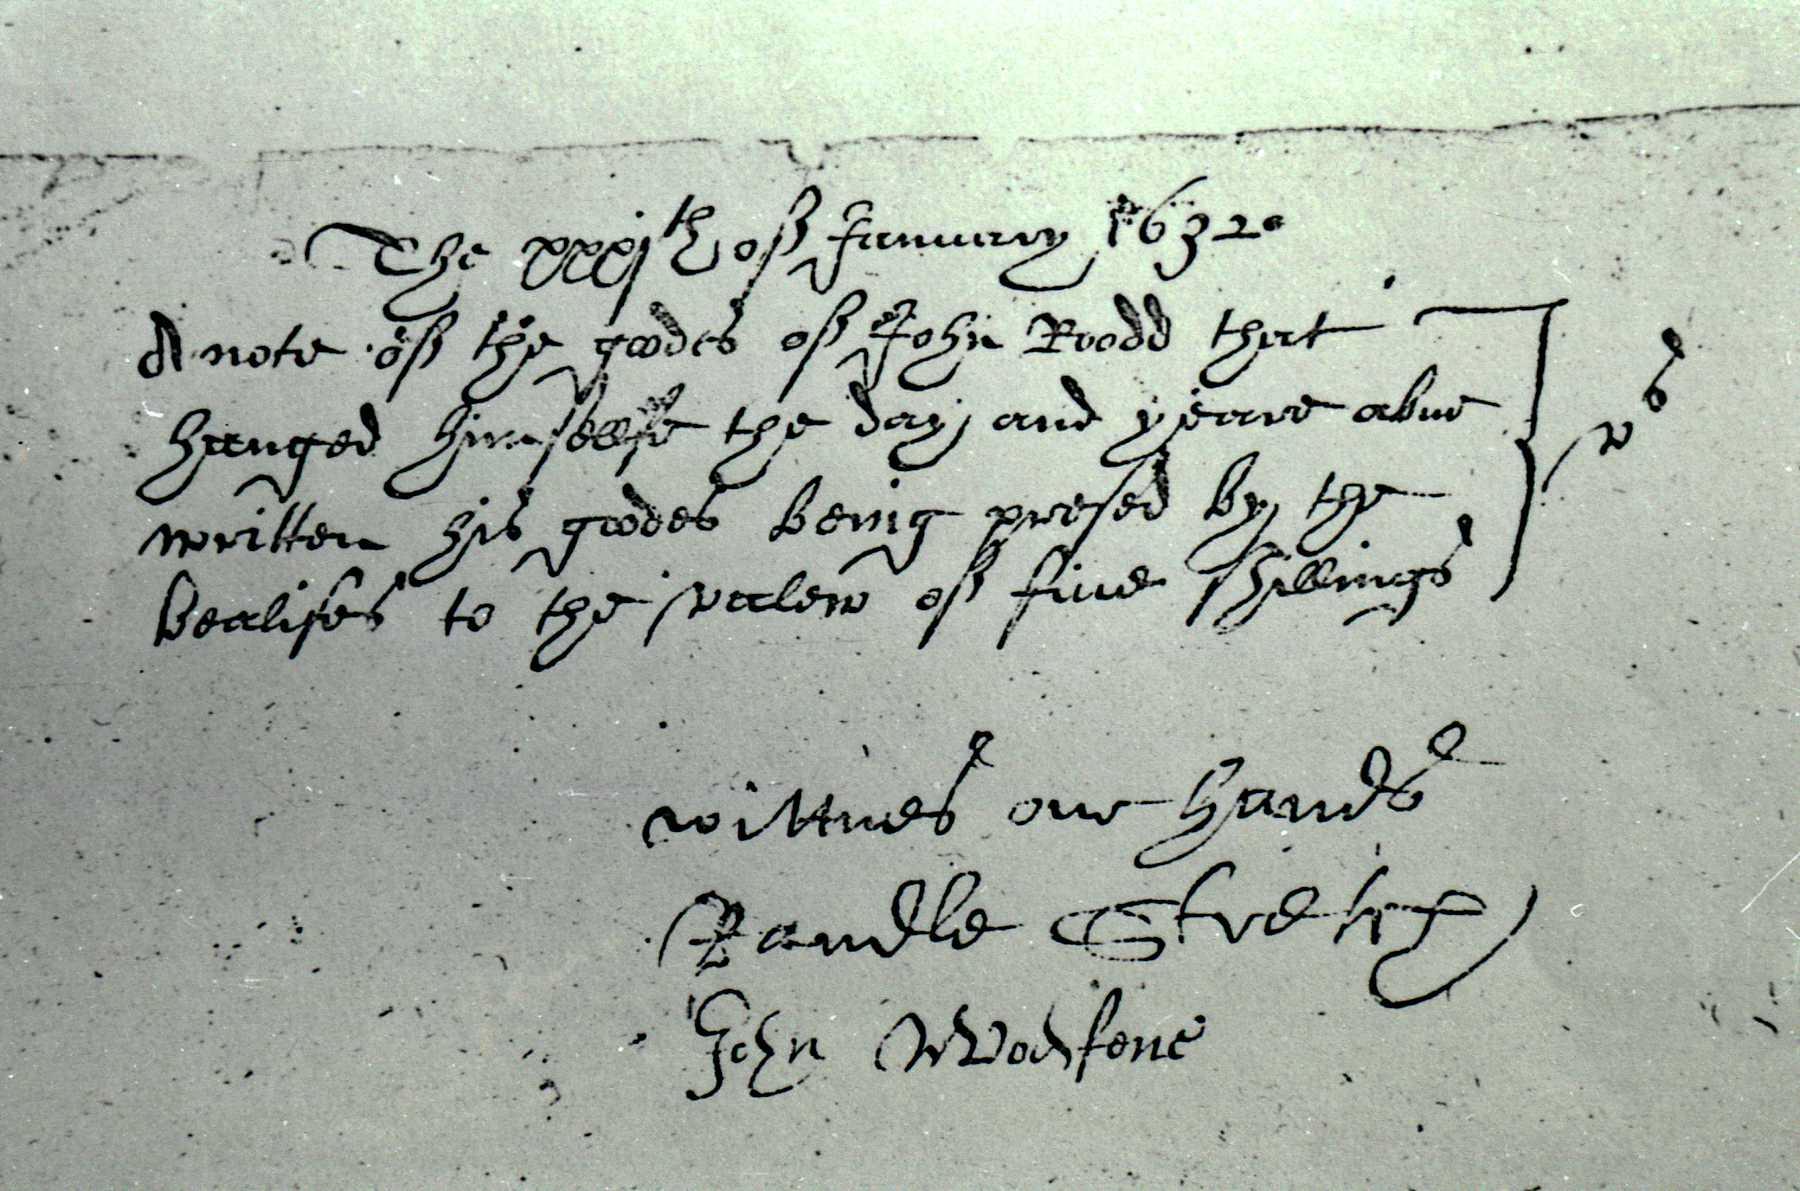 The xxxjth off January 1632.
A note off the goodes off John Roodd that
hanged himsellfe the day and yeare abue
written his goodes being presed by the vs
bealifes to the valew off fiue shillings
wittnes our hands
Randle
John